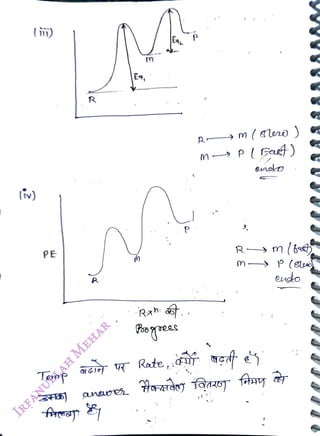 (iii)
Ea₂
P
m
Ea₁
R
R → m (slow)
m → P (Fast)
endo
(iv)
P
PE
m
R
R → m (fast)
m → P (slow
endo
Rxⁿ की
Progress
Temp बढाने पर Rate क्यों बढ़ती है
इसका answer मैक्सवेल वितरण नियम से
मिलता है।
IRFANULLAH MEHAR